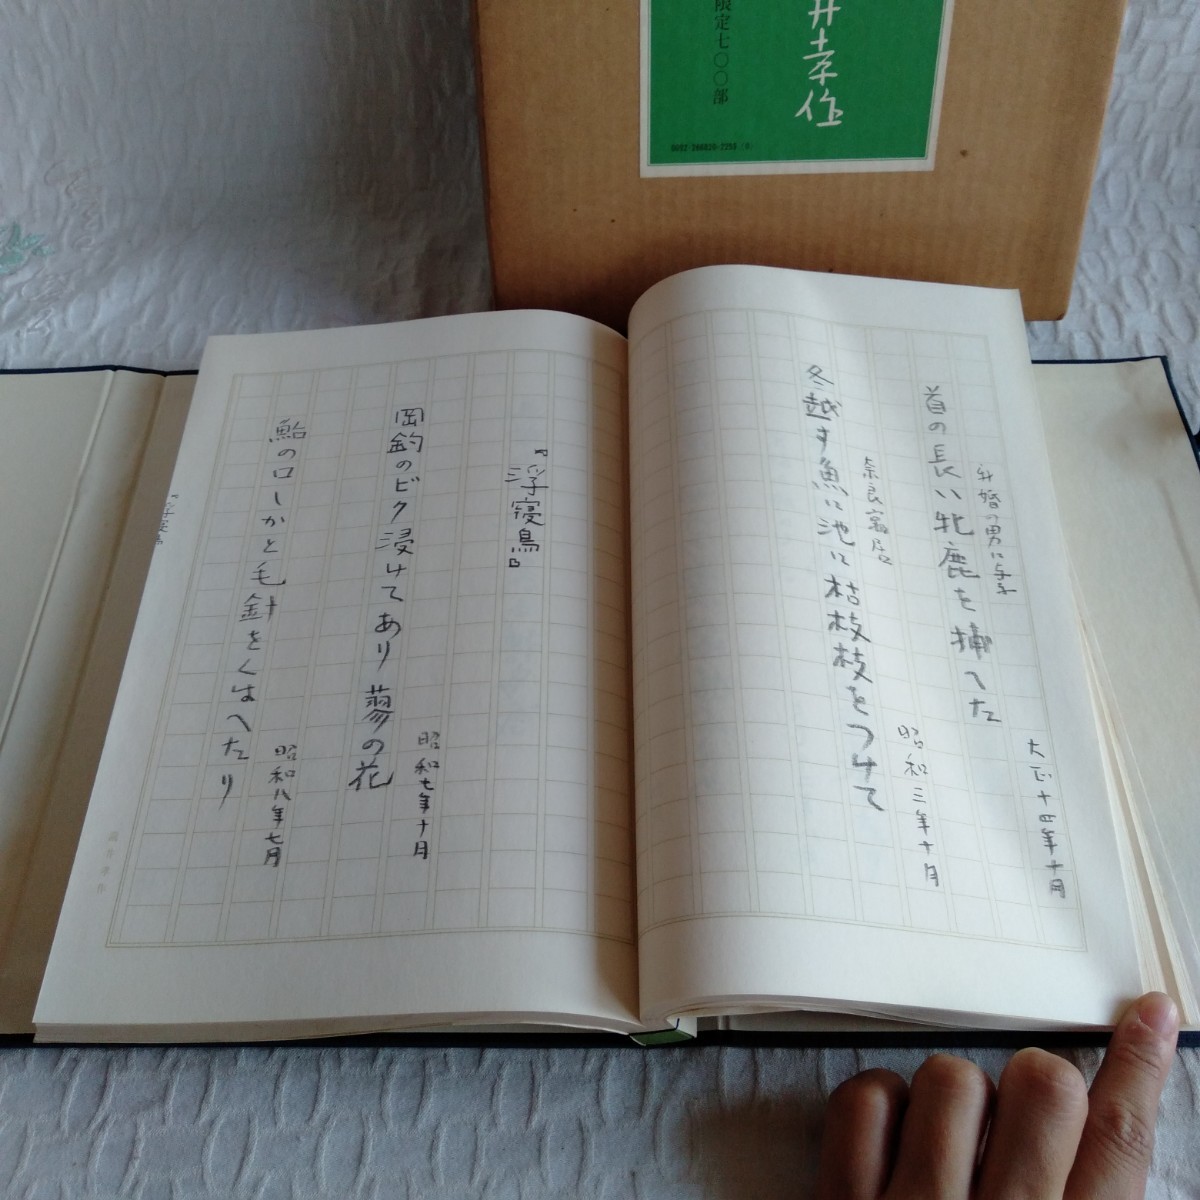 井孝作
限定七〇〇部
首の長い牝鹿を捕へた
大正十四年十月
奈良寓居
冬越す魚に池に枯枝枝をつけて
昭和三年十月
『浮寝鳥』
岡釣のビク浸けてあり蓼の花
昭和七年十月
鮎の口しかと毛針をくはへたり
昭和八年七月